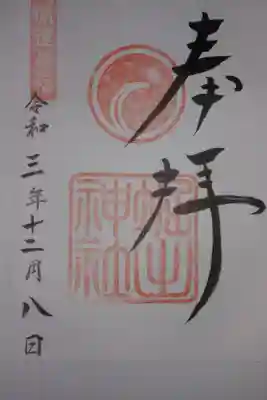 奉拝
堀出
神社
令和三年十二月八日